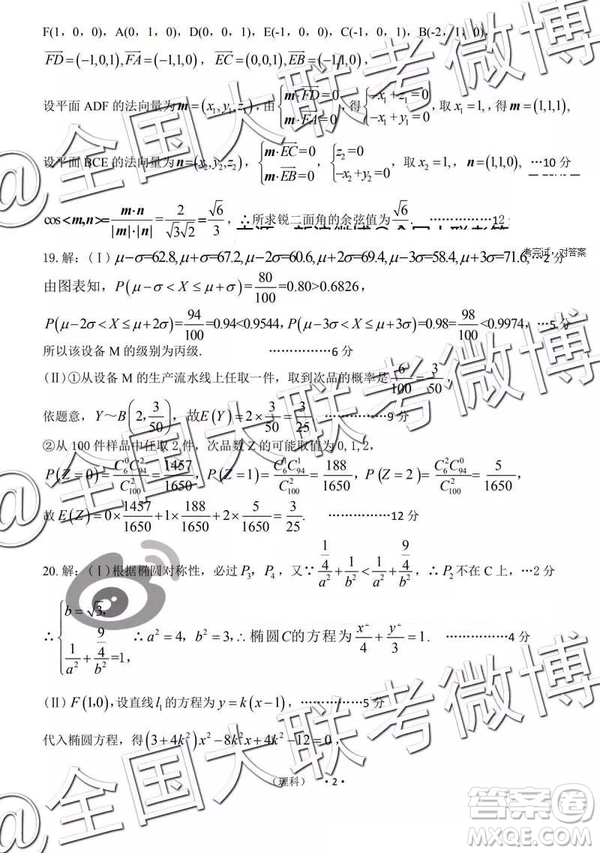 F(1, 0, 0), A(0, 1, 0), D(0, 0, 1), E(-1, 0, 0), B(-2, 1, 0),
FD=(-1,0,1),FA=(-1,1,0), EC=(0,0,1),EB=(-1,1,0),
设平面 ADF 的法向量为 m=(x₁,y₁,z₁),由{m·FD=0 m·FA=0,得{-x₁+z₁=0 -x₁+y₁=0,取x₁=1,得m=(1,1,1),
设平面 BCE 的法向量为 n=(x₂,y₂,z₂),{n·EC=0 m·EB=0,{z₂=0 -x₂+y₂=0,取x₂=1,, n=(1,1,0), …10 分
cos<m,n>=m·n/|m|·|n|=2/√3√2=√6/3,∴所求锐二面角的余弦值为√6/3. ……………12
考完试, 对答案
19.解:(Ⅰ) μ-σ=62.8,μ+σ=67.2,μ-2σ=60.6,μ+2σ=69.4,μ-3σ=58.4,μ+3σ=71.6,…2 分
由图表知,P(μ-σ<X≤μ+σ)=80/100=0.80>0.6826,
P(μ-2σ<X≤μ+2σ)=94/100=0.94<0.9544,P(μ-3σ<X≤μ+3σ)=0.98=98/100<0.9974,…5 分
所以该设备 M 的级别为丙级. ……………6 分
(Ⅱ)①从设备 M 的生产流水线上任取一件,取到次品的概率是6/100=3/50,
依题意,Y~B(2,3/50),故E(Y)=2×3/50=3/25. ……………9 分
②从 100 件样品中任取 2 件,次品数 Z 的可能取值为 0, 1, 2,
P(Z=0)=C₆⁰C₉₄²/C₁₀₀²=1457/1650,P(Z=1)=C₆¹C₉₄¹/C₁₀₀²=188/1650,P(Z=2)=C₆²C₉₄⁰/C₁₀₀²=5/1650,
故E(Z)=0×1457/1650+1×188/1650+2×5/1650=3/25. ……………12 分
20.解:(Ⅰ)根据椭圆对称性,必过P₃,P₄,又∵1/4/a²+1/b²<1/a²+9/4/b²,∴P₂不在 C 上,…2 分
∴{b=√3, 1/a²+9/4/b²=1,∴a²=4,b²=3,∴椭圆C的方程为x²/4+y²/3=1. ……………4 分
(Ⅱ) F(1,0),设直线l₁的方程为y=k(x-1),……………5 分
代入椭圆方程,得(3+4k²)x²-8k²x+4k²-12=0.
(理科) ·2·
@全国大联考微博
@全国大联考微博
@全国大联考微博
答案卷
MXQE.COM